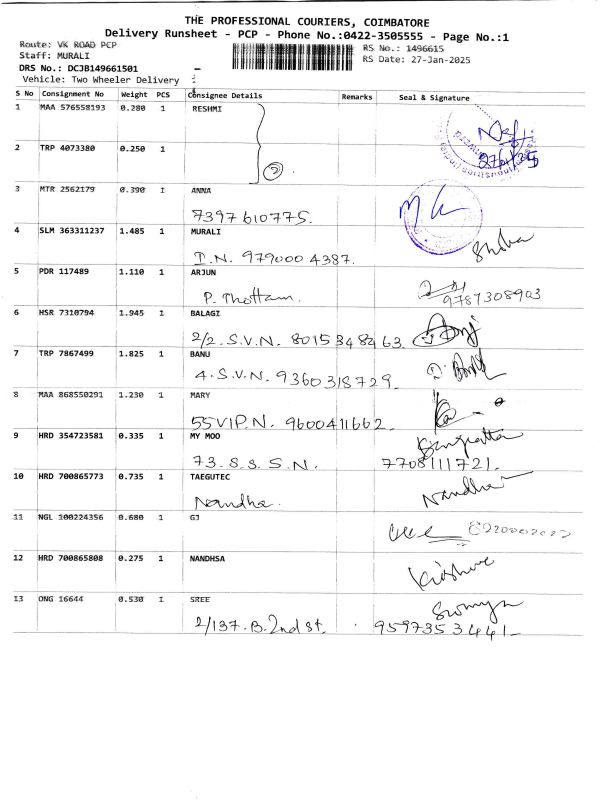 THE PROFESSIONAL COURIERS, COIMBATORE
Delivery Runsheet - PCP - Phone No.:0422-3505555 - Page No.:1
Route: VK ROAD PCP
RS No.: 1496615
Staff: MURALI
RS Date: 27-Jan-2025
DRS No.: DCJB149661501
Vehicle: Two Wheeler Delivery
S No Consignment No Weight PCS Consignee Details Remarks Seal & Signature
1 MAA 576558193 0.280 1 RESHMI
2 TRP 4073380 0.250 1
2
27/1/25
3 MTR 2562179 0.390 1 ANNA
7397610775.
4 SLM 363311237 1.485 1 MURALI
I.N. 9790004387.
5 PDR 117489 1.110 1 ARJUN
P. Thottam. 9787308903
6 HSR 7310794 1.945 1 BALAGI
2/2. S.V.N. 8015348263.
7 TRP 7867499 1.825 1 BANU
4. S.V.N. 9360318729.
8 MAA 868550291 1.230 1 MARY
55 VIP.N. 9600411662.
9 HRD 354723581 0.335 1 MY MOO
73. S.S. S.N. 7708111721.
10 HRD 700865773 0.735 1 TAEGUTEC
Nandha. Nandha
11 NGL 100224356 0.680 1 GJ
12 HRD 700865808 0.275 1 NANDHSA
13 ONG 16644 0.530 1 SREE
2/137. B. 2nd st. 9597353441